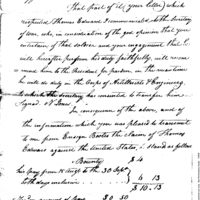 that part of it (your letter) which
respected Thomas Edwards I communicated to the Secretary
of War, who, in consideration of the good opinion that you
entertain of that soldier and your engagement that he will
hereafter perform his duty faithfully, will recom-
mend him to the President for pardon, in the mean time
he will do duty in the Corps of Artillerists & Engineers
to which the Secretary has consented to transfer him.
Signed
In consequence of the above, and of
the information which you was pleased to transmit
to me from Ensign the claims of Thomas
Edwards against the United States, stand as follows
Bounty $ 4
his pay from 11 Augt to the 30 Sept
both days inclusive 6 13
$ 10. 13
$ 0 50